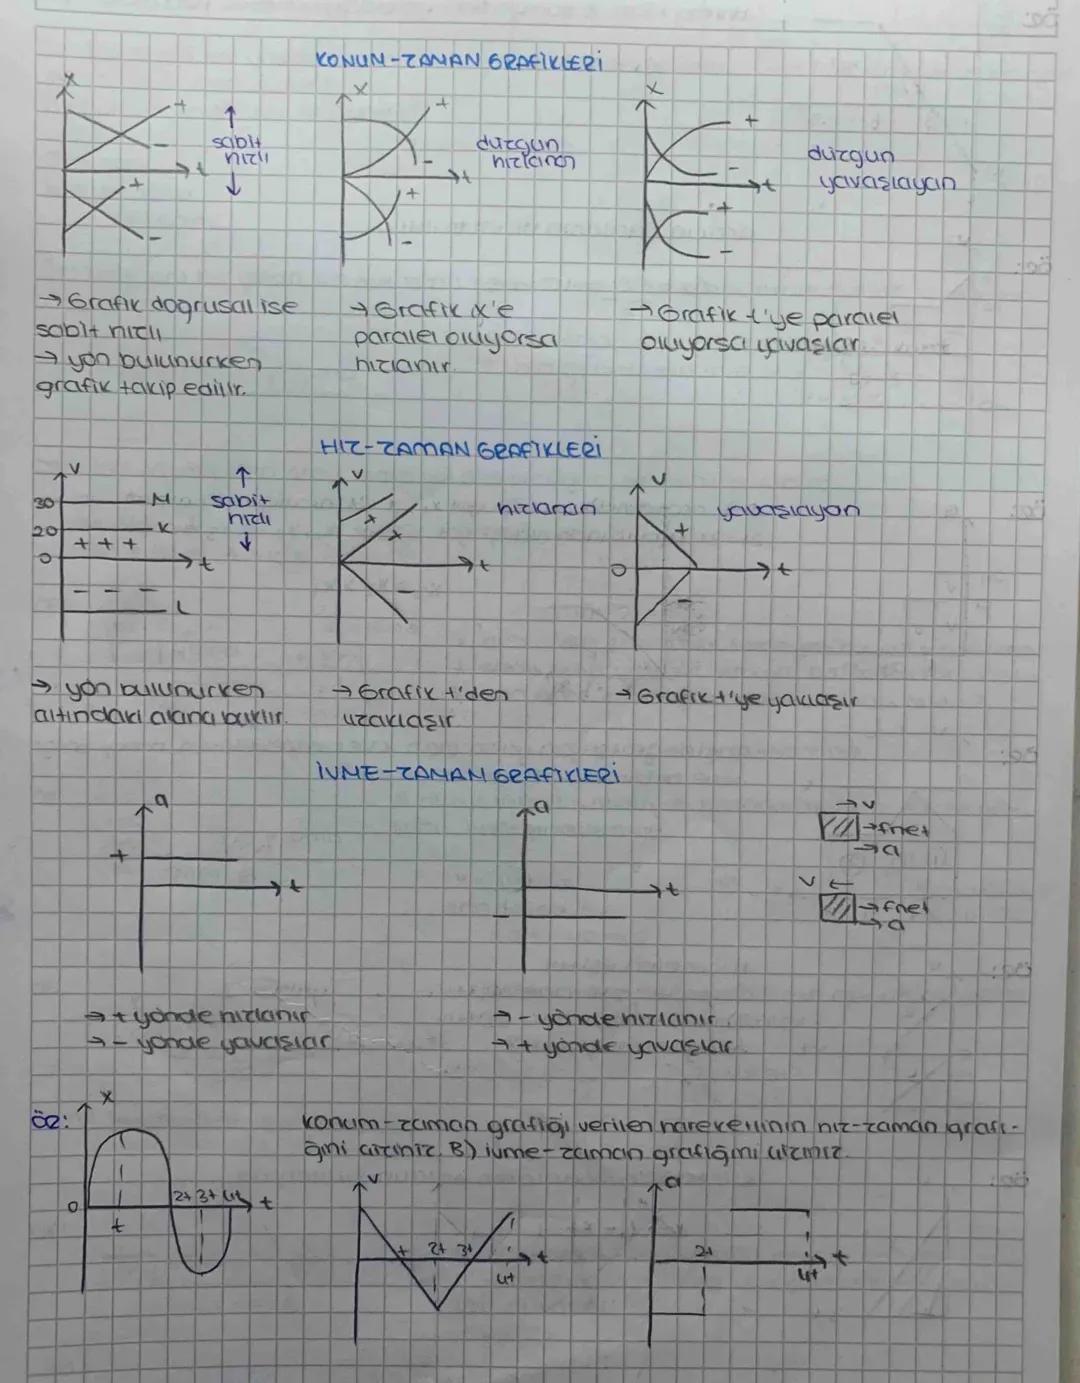 KONUM-ZAMAN GRAFİKLERİ
x + - t + -
↑ sabit hızlı ↓
x + - t + -
düzgün hızlanan
x + - t + -
düzgün yavaşlayan
→ Grafik doğrusal ise
sabit hızlı
→ yön bulunurken
grafik takip edilir.
→ Grafik x'e
paralel oluyorsa
hızlanır.
→ Grafik t'ye paralel
oluyorsa yavaşlar.
HIZ-ZAMAN GRAFİKLERİ
v
30 M
20 K
+ + +
0 t
- - -
L
↑ sabit hızlı ↓
v + + - t
hızlanan
v + 0 t -
yavaşlayan
→ yön bulunurken
altındaki alana bakılır.
→ Grafik t'den
uzaklaşır
→ Grafik t'ye yaklaşır
İVME-ZAMAN GRAFİKLERİ
a + t
a - t
→ v
→ fnet
→ a
v ←
→ fnet
→ a
→ + yönde hızlanır
→ - yönde yavaşlar.
→ - yönde hızlanır.
→ + yönde yavaşlar.
ÖR:
x 0 t 2t 3t 4t t
konum-zaman grafiği verilen hareketlinin hız-zaman grafi-
ğini çiziniz. B) ivme-zaman grafiğini çiziniz.
v t 2t 3t 4t t
a 2t 4t t